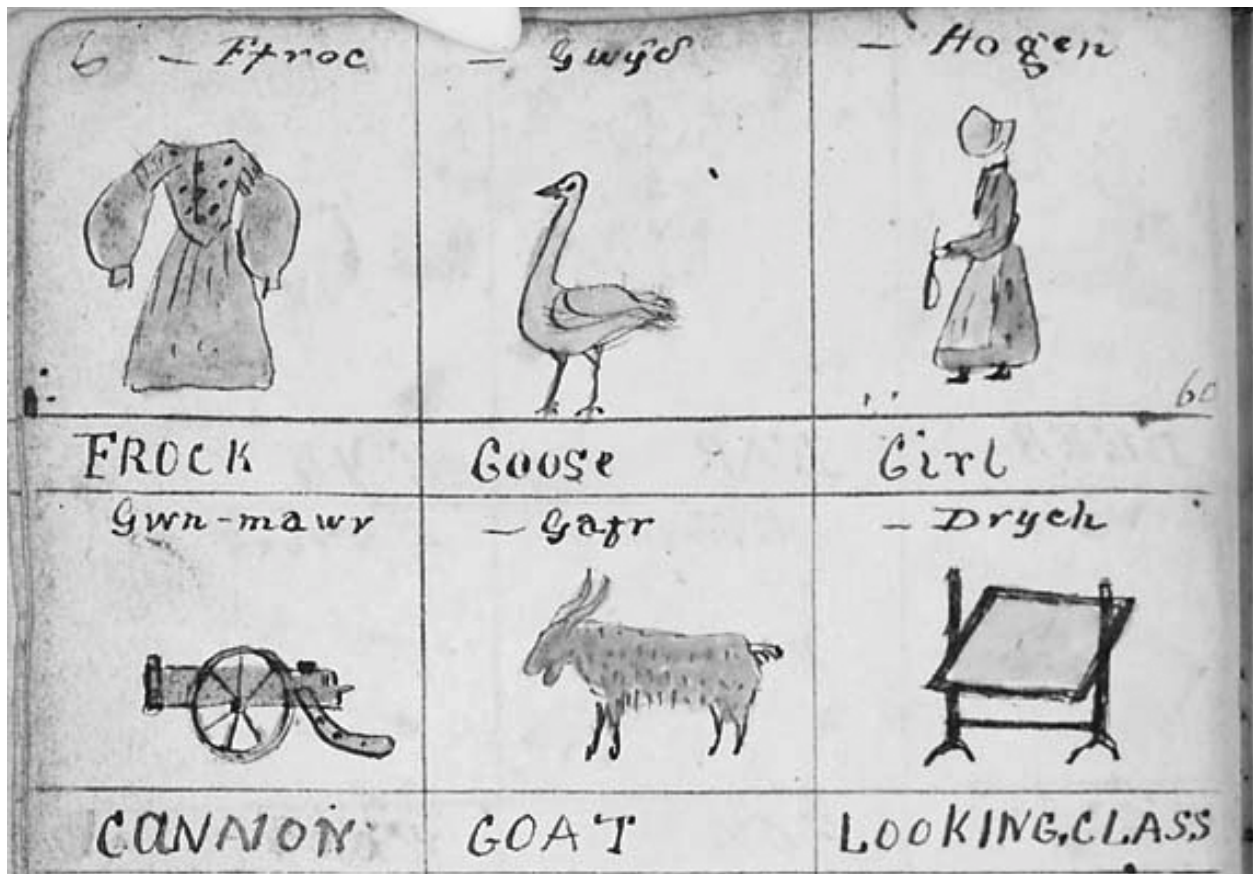 6 – Ffroc
– Gwÿd
– Hogen
60
FROCK
Goose
Girl
Gwn-mawr
– Gafr
– Drych
CANNON
GOAT
LOOKING,CLASS